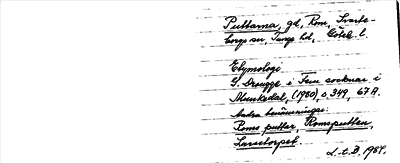 Puttarna, gd, Rom, Svarte-
borgs sn, Tunge hd, Göteb. l.
Etymologi
G. Drougge i Fem socknar i
Munkedal, (1980), s. 349, 67 A.
Andra benämningar:
Roms puttar, Romsputten,
Larstorpet.
L.C.B. 1984.